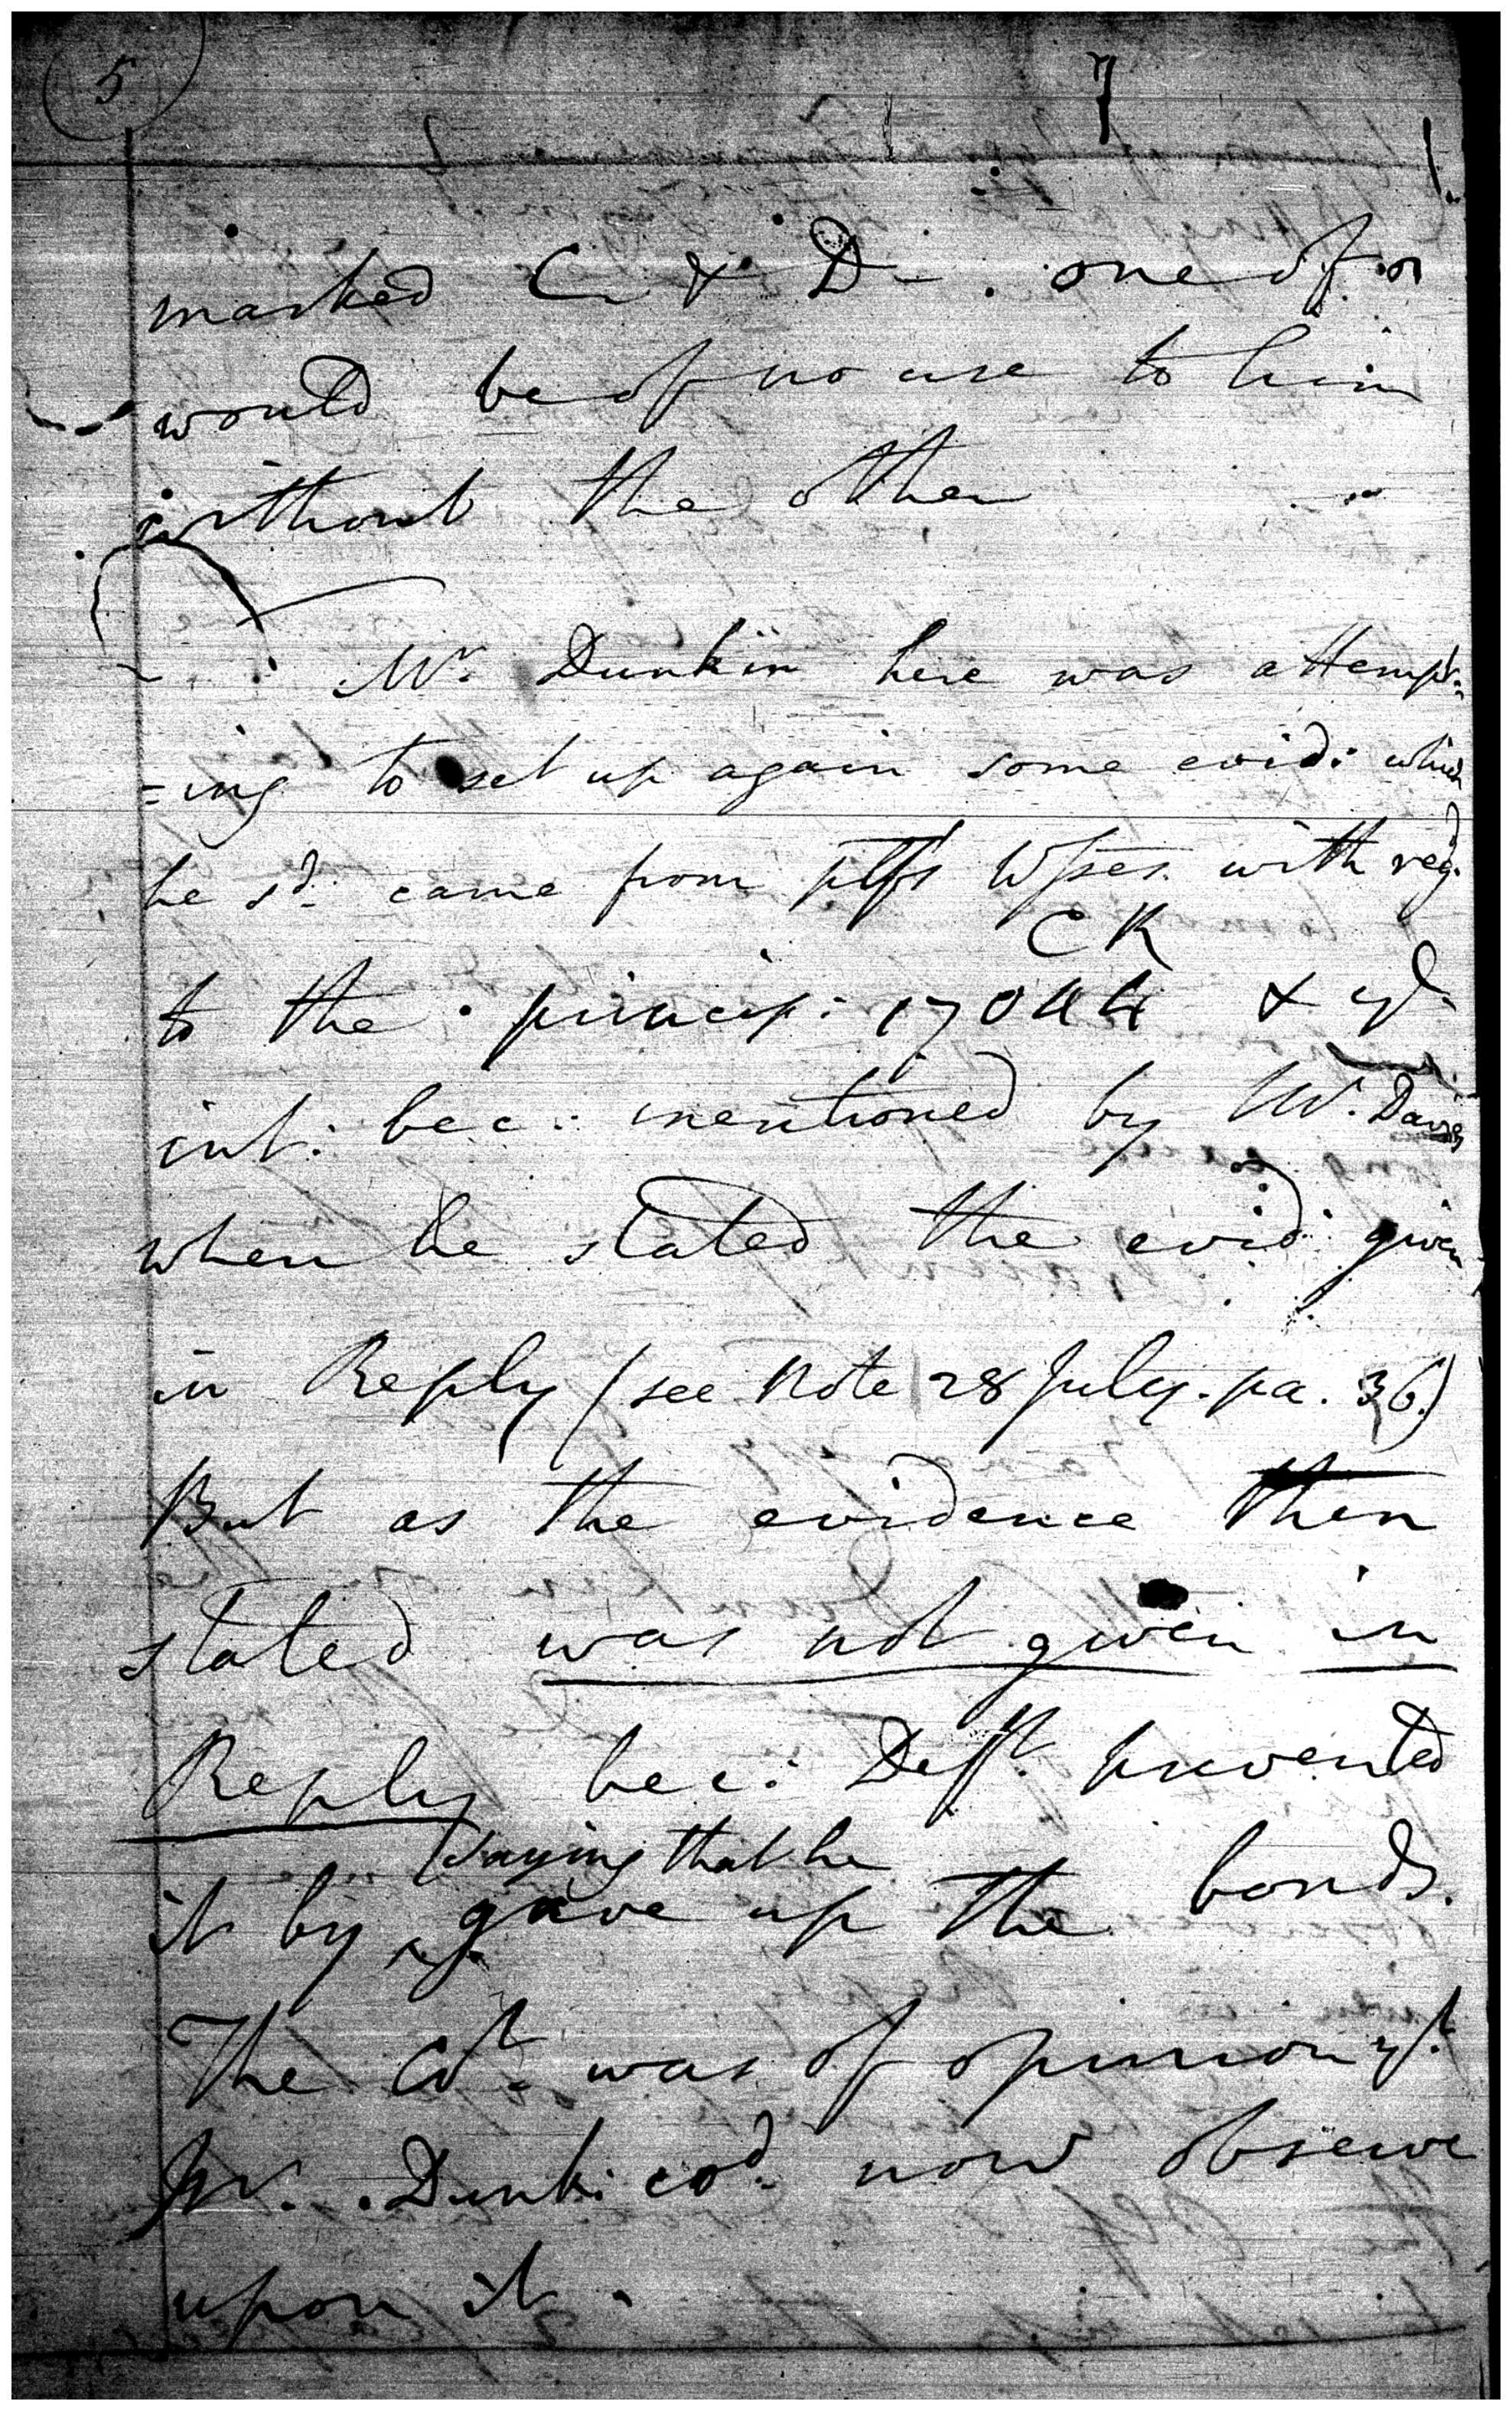 5
7
marked C & D - . one of
would be of no use to him
without the other
Mr. Dunkin here was attempt=
=ing to set up again some evid: which
he sd. came from plffs Wsses. with regd.
CR
to the princip: 17044 &
int: bec: mentioned by Mr. Davies
when he stated the evid: given
in Reply (see Note 28 July. pa. 36.)
But as the evidence then
stated was not given in
Reply bec: Defft. prevented
saying that he
it by gave up the bonds.
The Cot. was of opinion yt.
Mr. Dunk. cod. now observe
upon it.